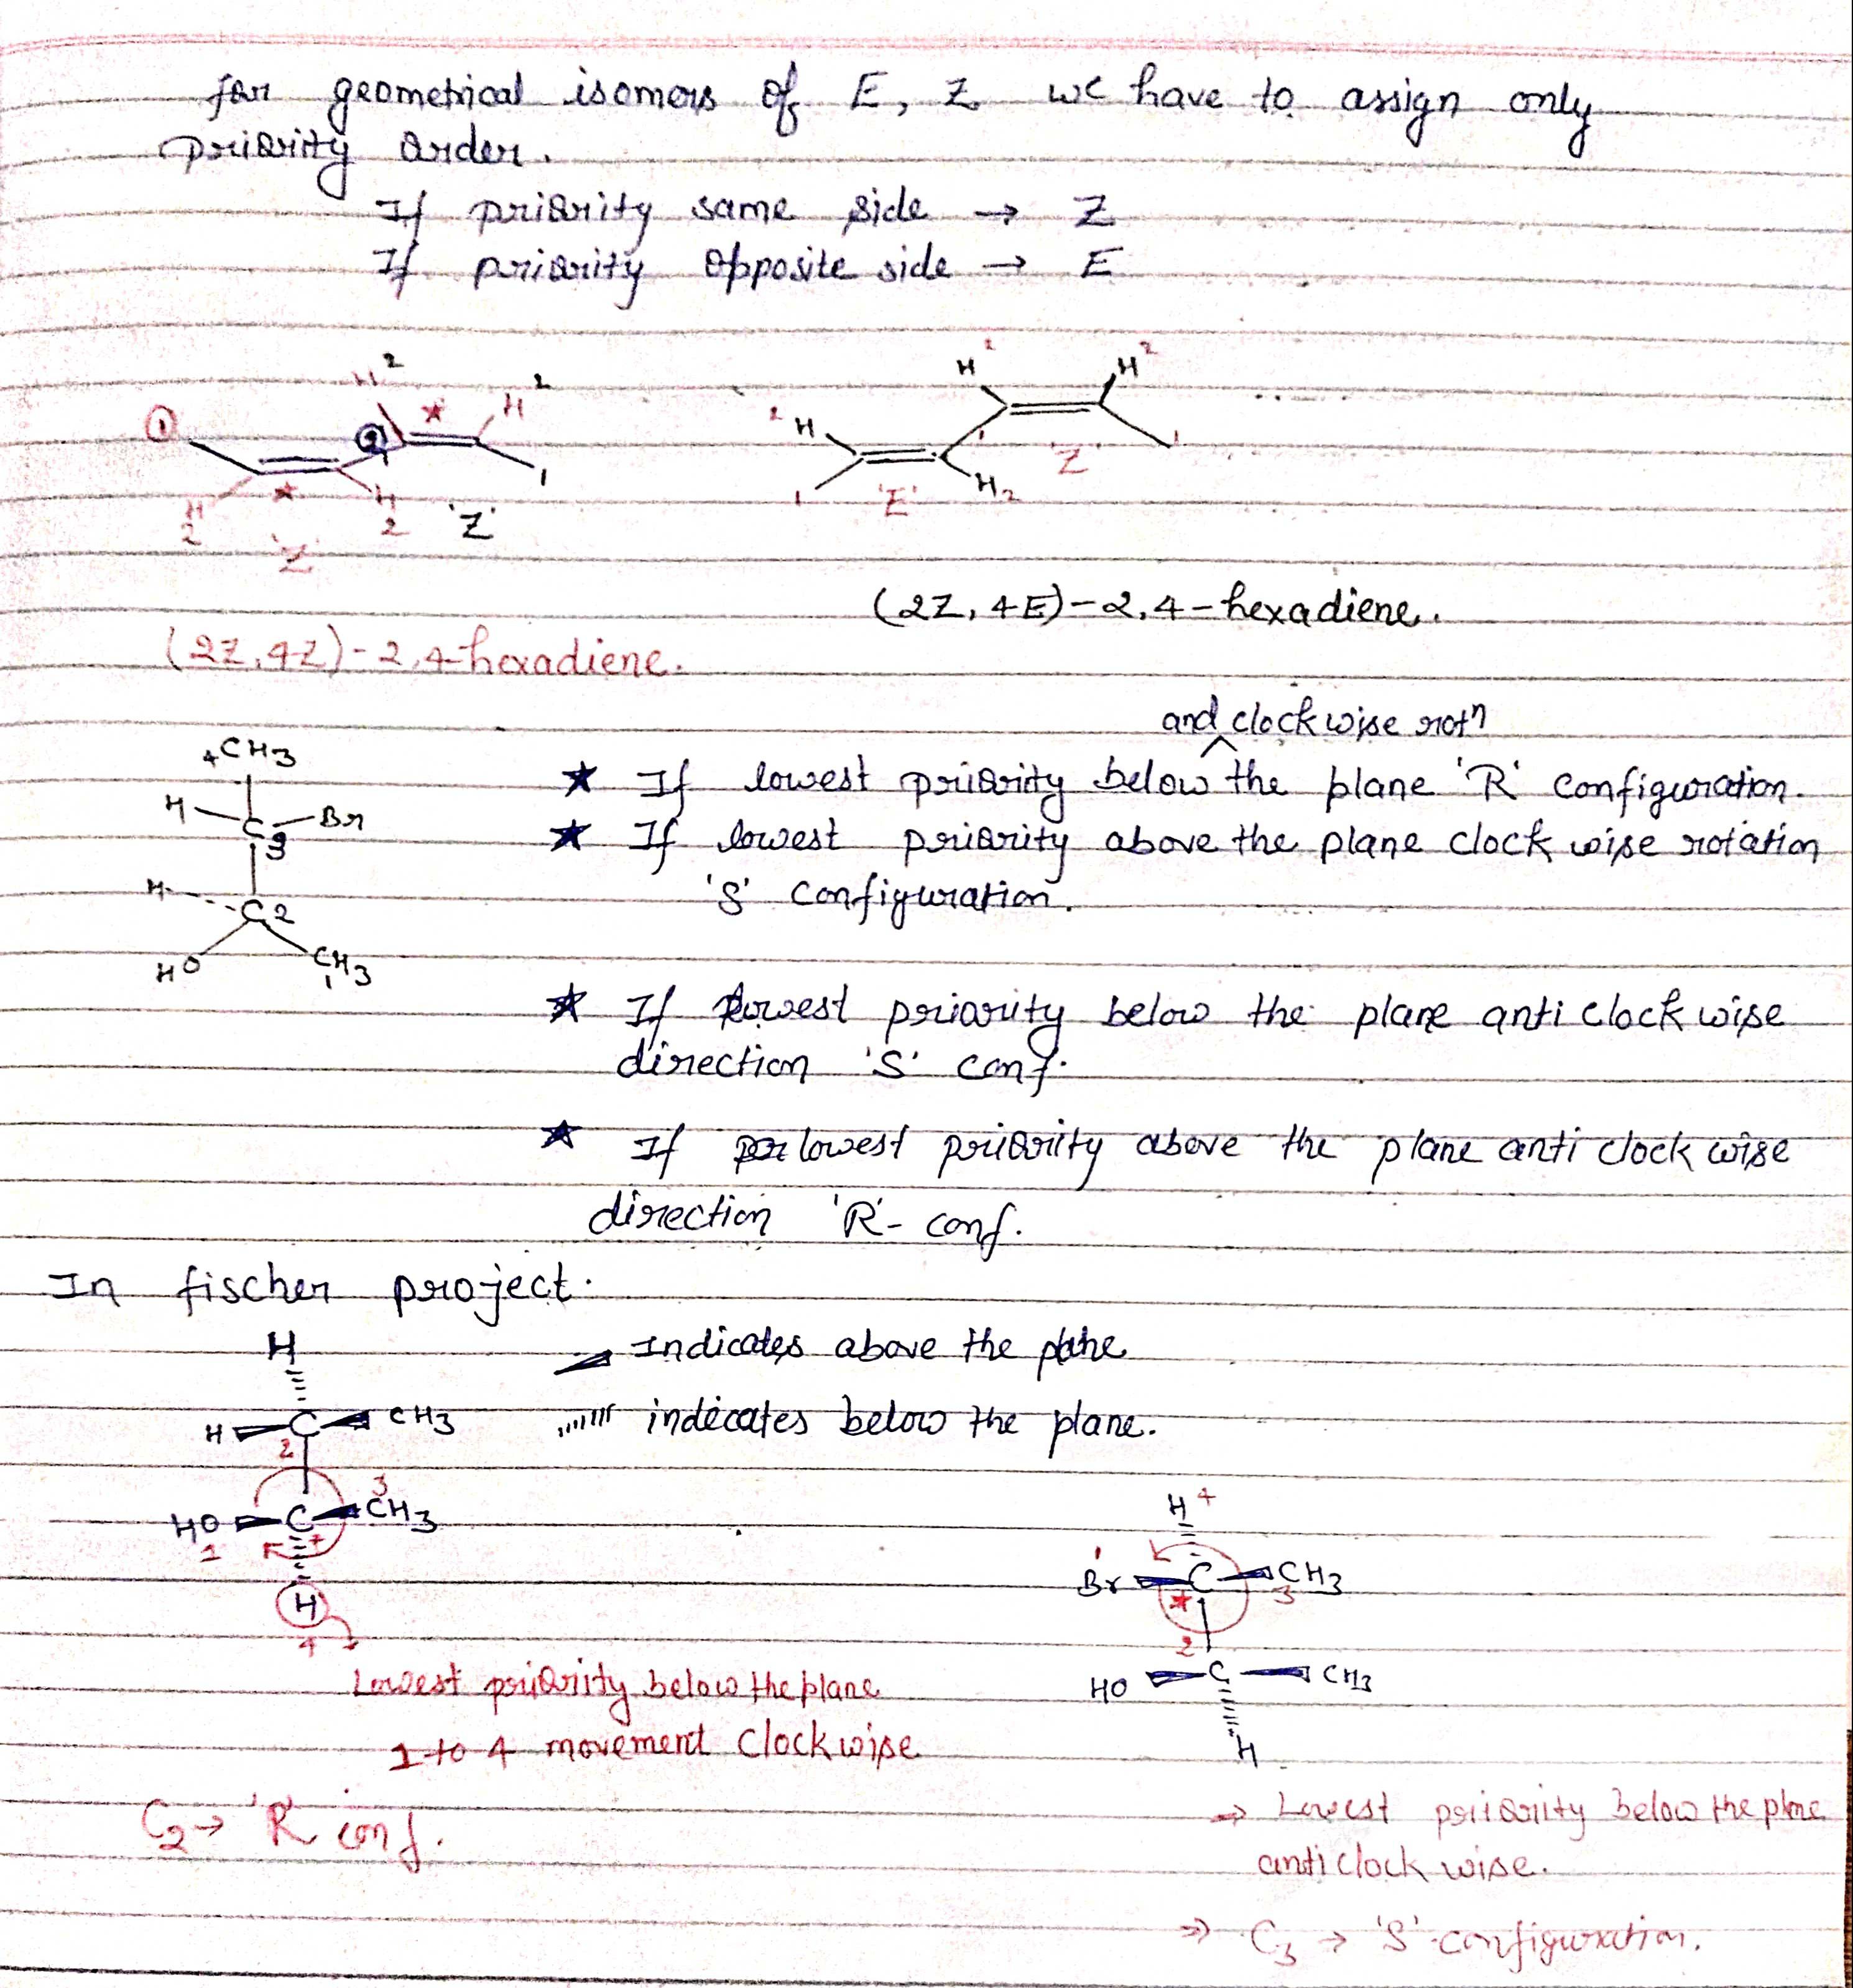 for geometrical isomers of E, Z we have to assign only
priority order.
If priority same side → Z
If priority opposite side → E
H 2
① H 2
② 1
H 2 H 2 1
'Z' 'Z'
H 2 H 2
2 H 1 1
1 'E' H 2 'Z'
(2Z, 4E)-2,4-hexadiene.
(2Z, 4Z)-2,4-hexadiene.
4CH3
H C3 Br
H C2
HO CH3
1
and clockwise rotn
★ If lowest priority below the plane 'R' configuration.
★ If lowest priority above the plane clock wise rotation
'S' configuration.
★ If lowest priority below the plane anti clock wise
direction 'S' conf.
★ If lowest priority above the plane anti clock wise
direction 'R'- conf.
In fischer project.
H
H C CH3
2 3
HO C CH3
1
H
4
Indicates above the plane
indicates below the plane.
Lowest priority below the plane
1 to 4 movement clockwise
C2 → 'R' conf.
H 4
1
Br C CH3
★ 3
2
HO C CH3
H
⇒ Lowest priority below the plane
anti clock wise.
⇒ C3 → 'S' configuration.